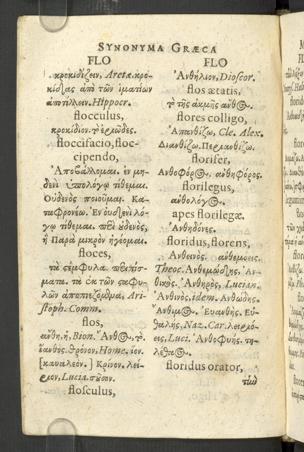 SYNONYMA GRÆCA
FLO
κροκιδίζειν, Aretæ. κρο-
κίδας ἀπὸ τῶν ἱματίων
ἀποτίλλειν. Hippocr.
flocculus,
κροκίδιον.
floccifacio, floc-
cipendo,
Ἀποβάλλομαι. ἐν μη-
δενὶ λόγῳ τίθεμαι.
Οὐδενὸς ποιοῦμαι. Κα-
ταφρονέω. Ἐν οὐδενὶ λό-
γῳ τίθεμαι. περὶ οὐδενὸς,
ἢ Παρὰ μικρὸν ἡγέομαι.
floces,
τὰ στέμφυλα. τὰ πιέσ-
ματα. τὰ ἐκ τῶν σταφυ-
λῶν ἀποπιεζόμενα, Ari-
stoph. Comm.
flos,
ἄνθη, ἡ, Bion. Ἄνθος, τὸ.
θρόνον. Home. ἴον.
Κρίνον. λεί-
ριον, Lucia.
flosculus,
FLO
Ἀνθήλιον, Dioscor.
flos ætatis,
τὸ τῆς ἀκμῆς ἄνθος.
flores colligo,
Ἀπανθίζω, Cle. Alex.
Διανθίζω. Περιανθίζω.
florifer,
Ἀνθοφόρος. ἀνθηφόρος.
florilegus,
ἀνθολόγος.
apes florilegæ.
Ἀνθηδόνες.
floridus, florens,
Ἀνθεινὸς. ἀνθεμοεις.
Theoc. Ἀνθεμώδης. Ἀν-
θικὸς. Ἀνθηρὸς, Lucian.
Ἀνθινὸς, idem. Ἀνθώδης.
Ἄνθιμος. Εὐανθής. Εὐ-
θαλὴς, Naz. Car. λειριό-
εις, Luci. Ἀνθοφυής. τη-
λέθος.
floridus orator,